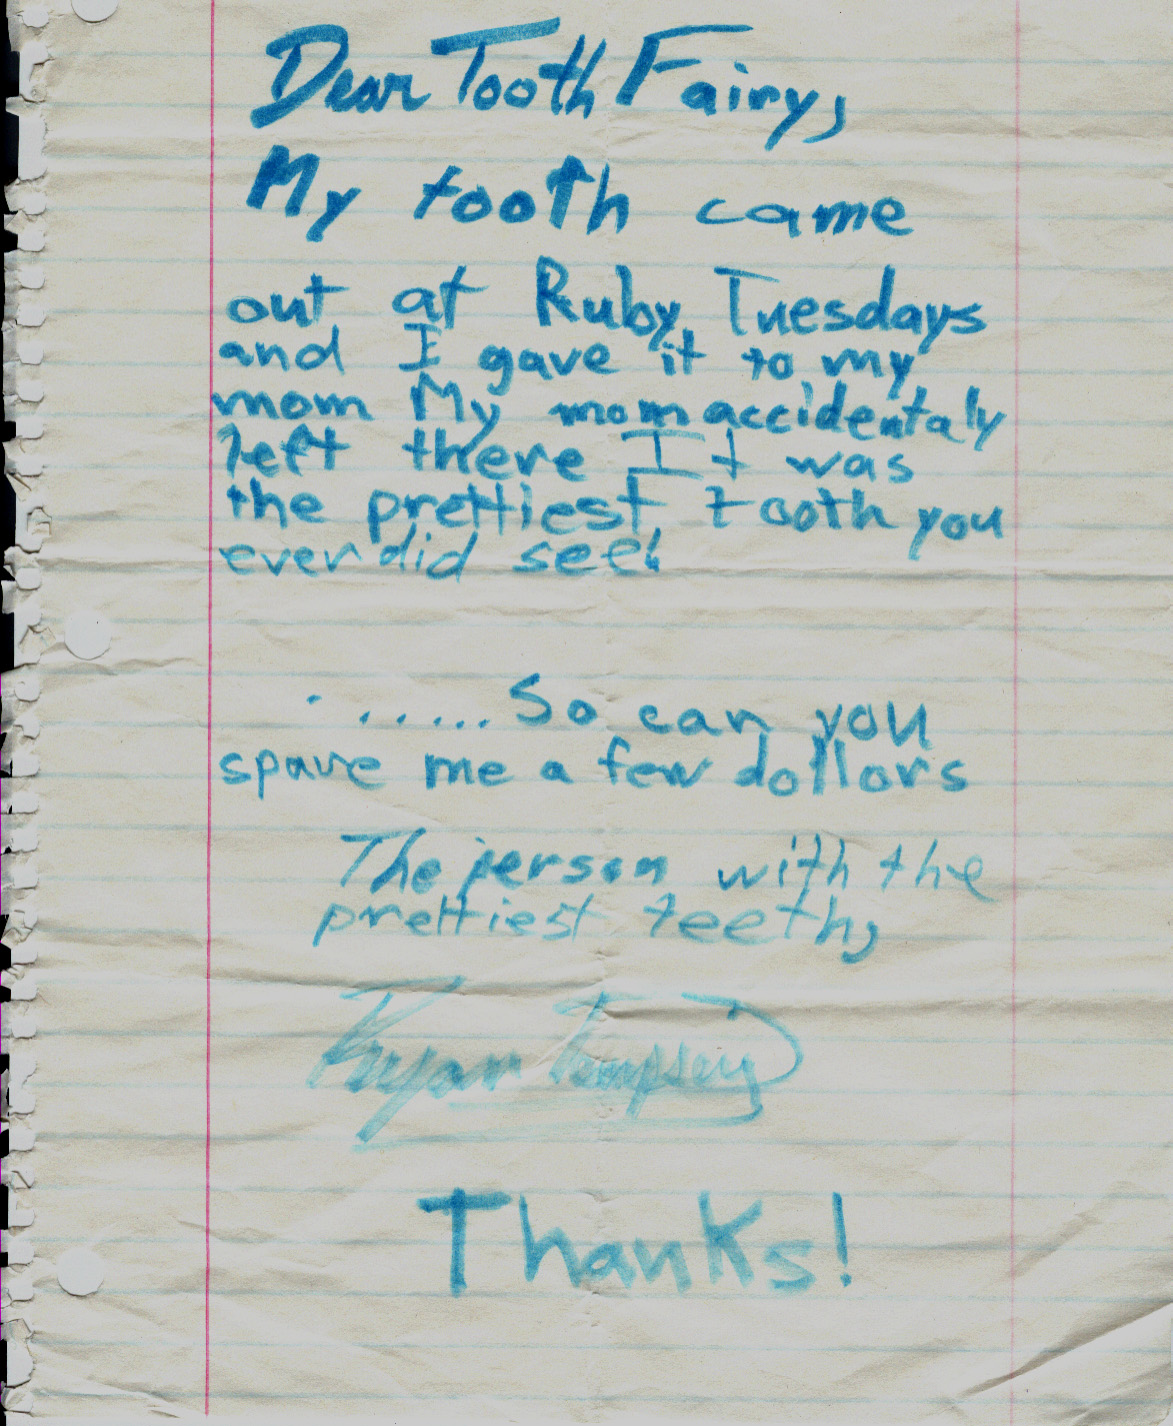 Dear Tooth Fairy,
My tooth came
out at Ruby Tuesdays
and I gave it to my
mom My mom accidentaly
left there It was
the prettiest tooth you
ever did see!
. ..... So can you
spare me a few dollors
The person with the
prettiest teeth,
Ryan
Thanks!